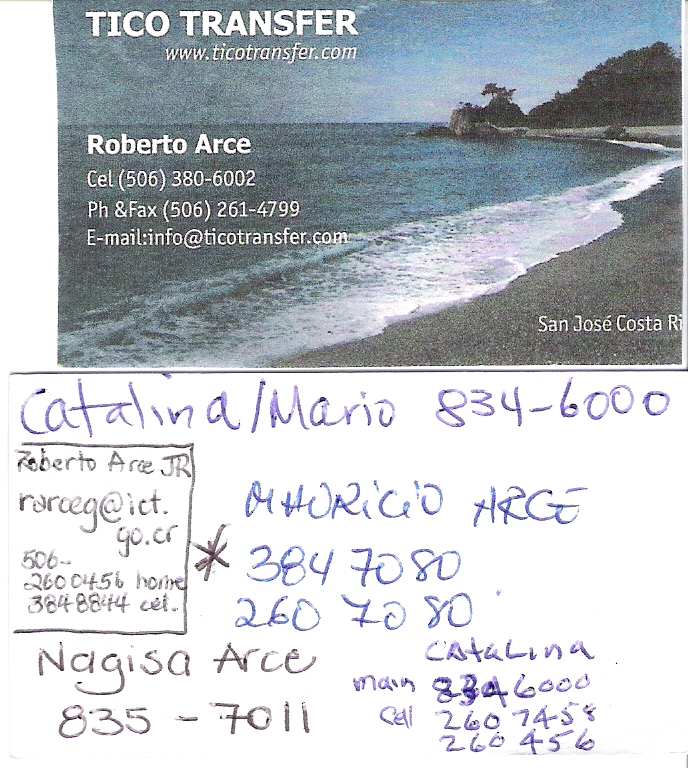 TICO TRANSFER
www.ticotransfer.com
Roberto Arce
Cel (506) 380-6002
Ph &Fax (506) 261-4799
E-mail:info@ticotransfer.com
San José Costa Ri
Catalina/Mario 834-6000
Roberto Arce JR
rarceg@ict.
go.cr
506-
2600456 home
3848844 cel.
MAURICIO ARCE
* 384 70 80
260 70 80
Nagisa Arce
835 - 7011
CAtaLinA
main 834 6000
Cell 260 7458
260 456